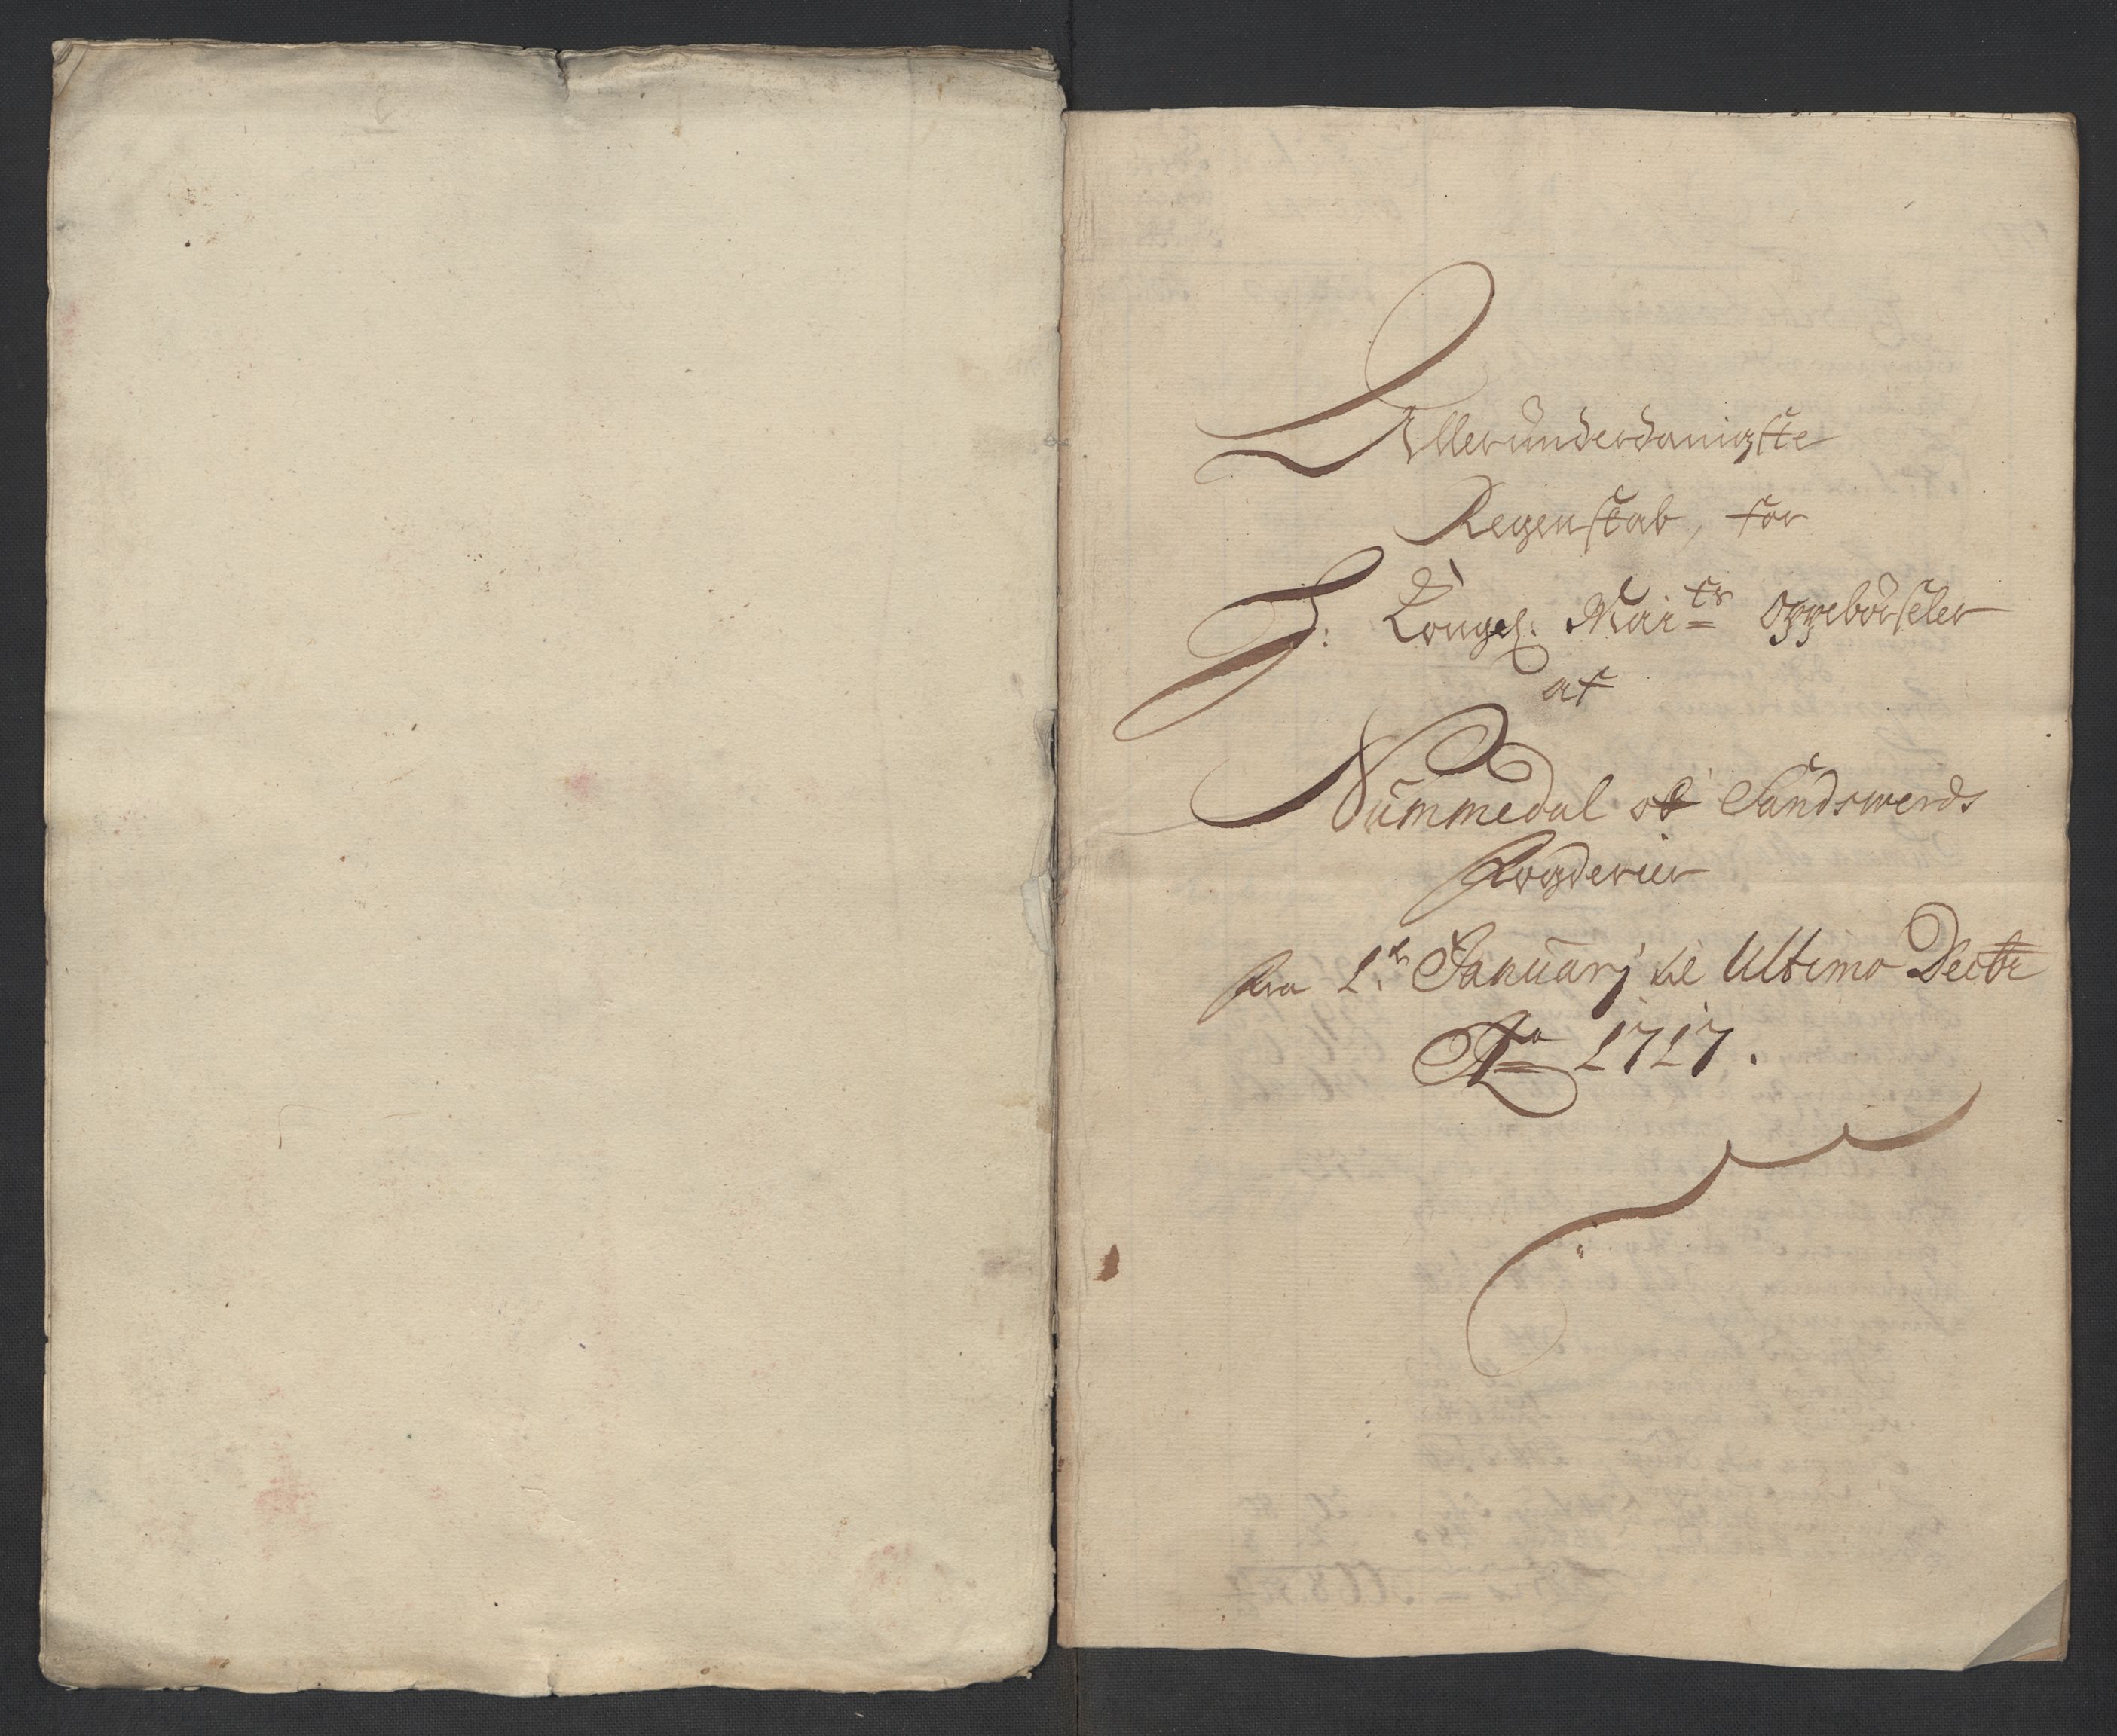 Allerunderdanigste
Regenskab, for
H: Kongel: Mai<sup>ts</sup> Oppebørseler
af
Nummedal og Sandswerds
Fogderier
fra 1.<sup>te</sup> Januarj til Ultimo Decbr
A<sup>o</sup> 1717.